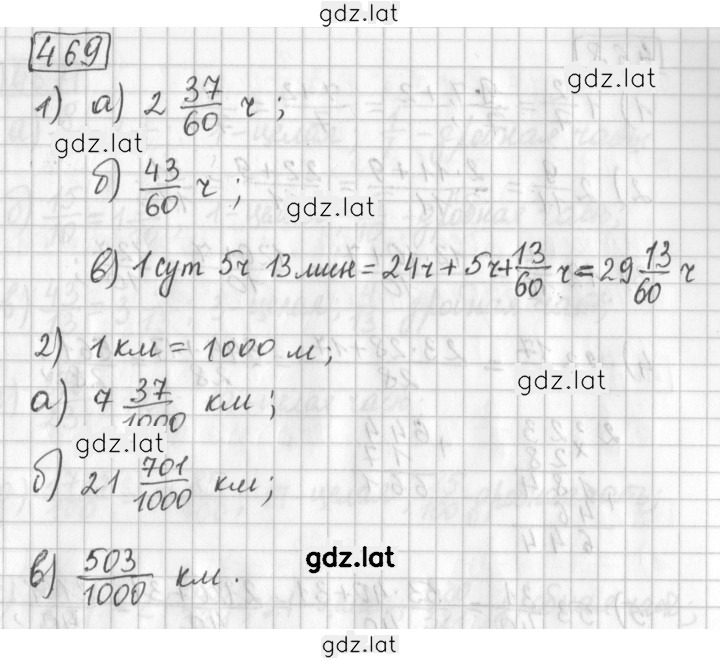 gdz.lat
469
gdz.lat
1) а) 2 37/60 ч ;
gdz.lat
б) 43/60 ч ;
gdz.lat
в) 1 сут 5ч 13 мин = 24ч + 5ч + 13/60 ч = 29 13/60 ч
2) 1 км = 1000 м;
gdz.lat
а) 7 37/1000 км;
gdz.lat
б) 21 701/1000 км;
gdz.lat
в) 503/1000 км.
gdz.lat